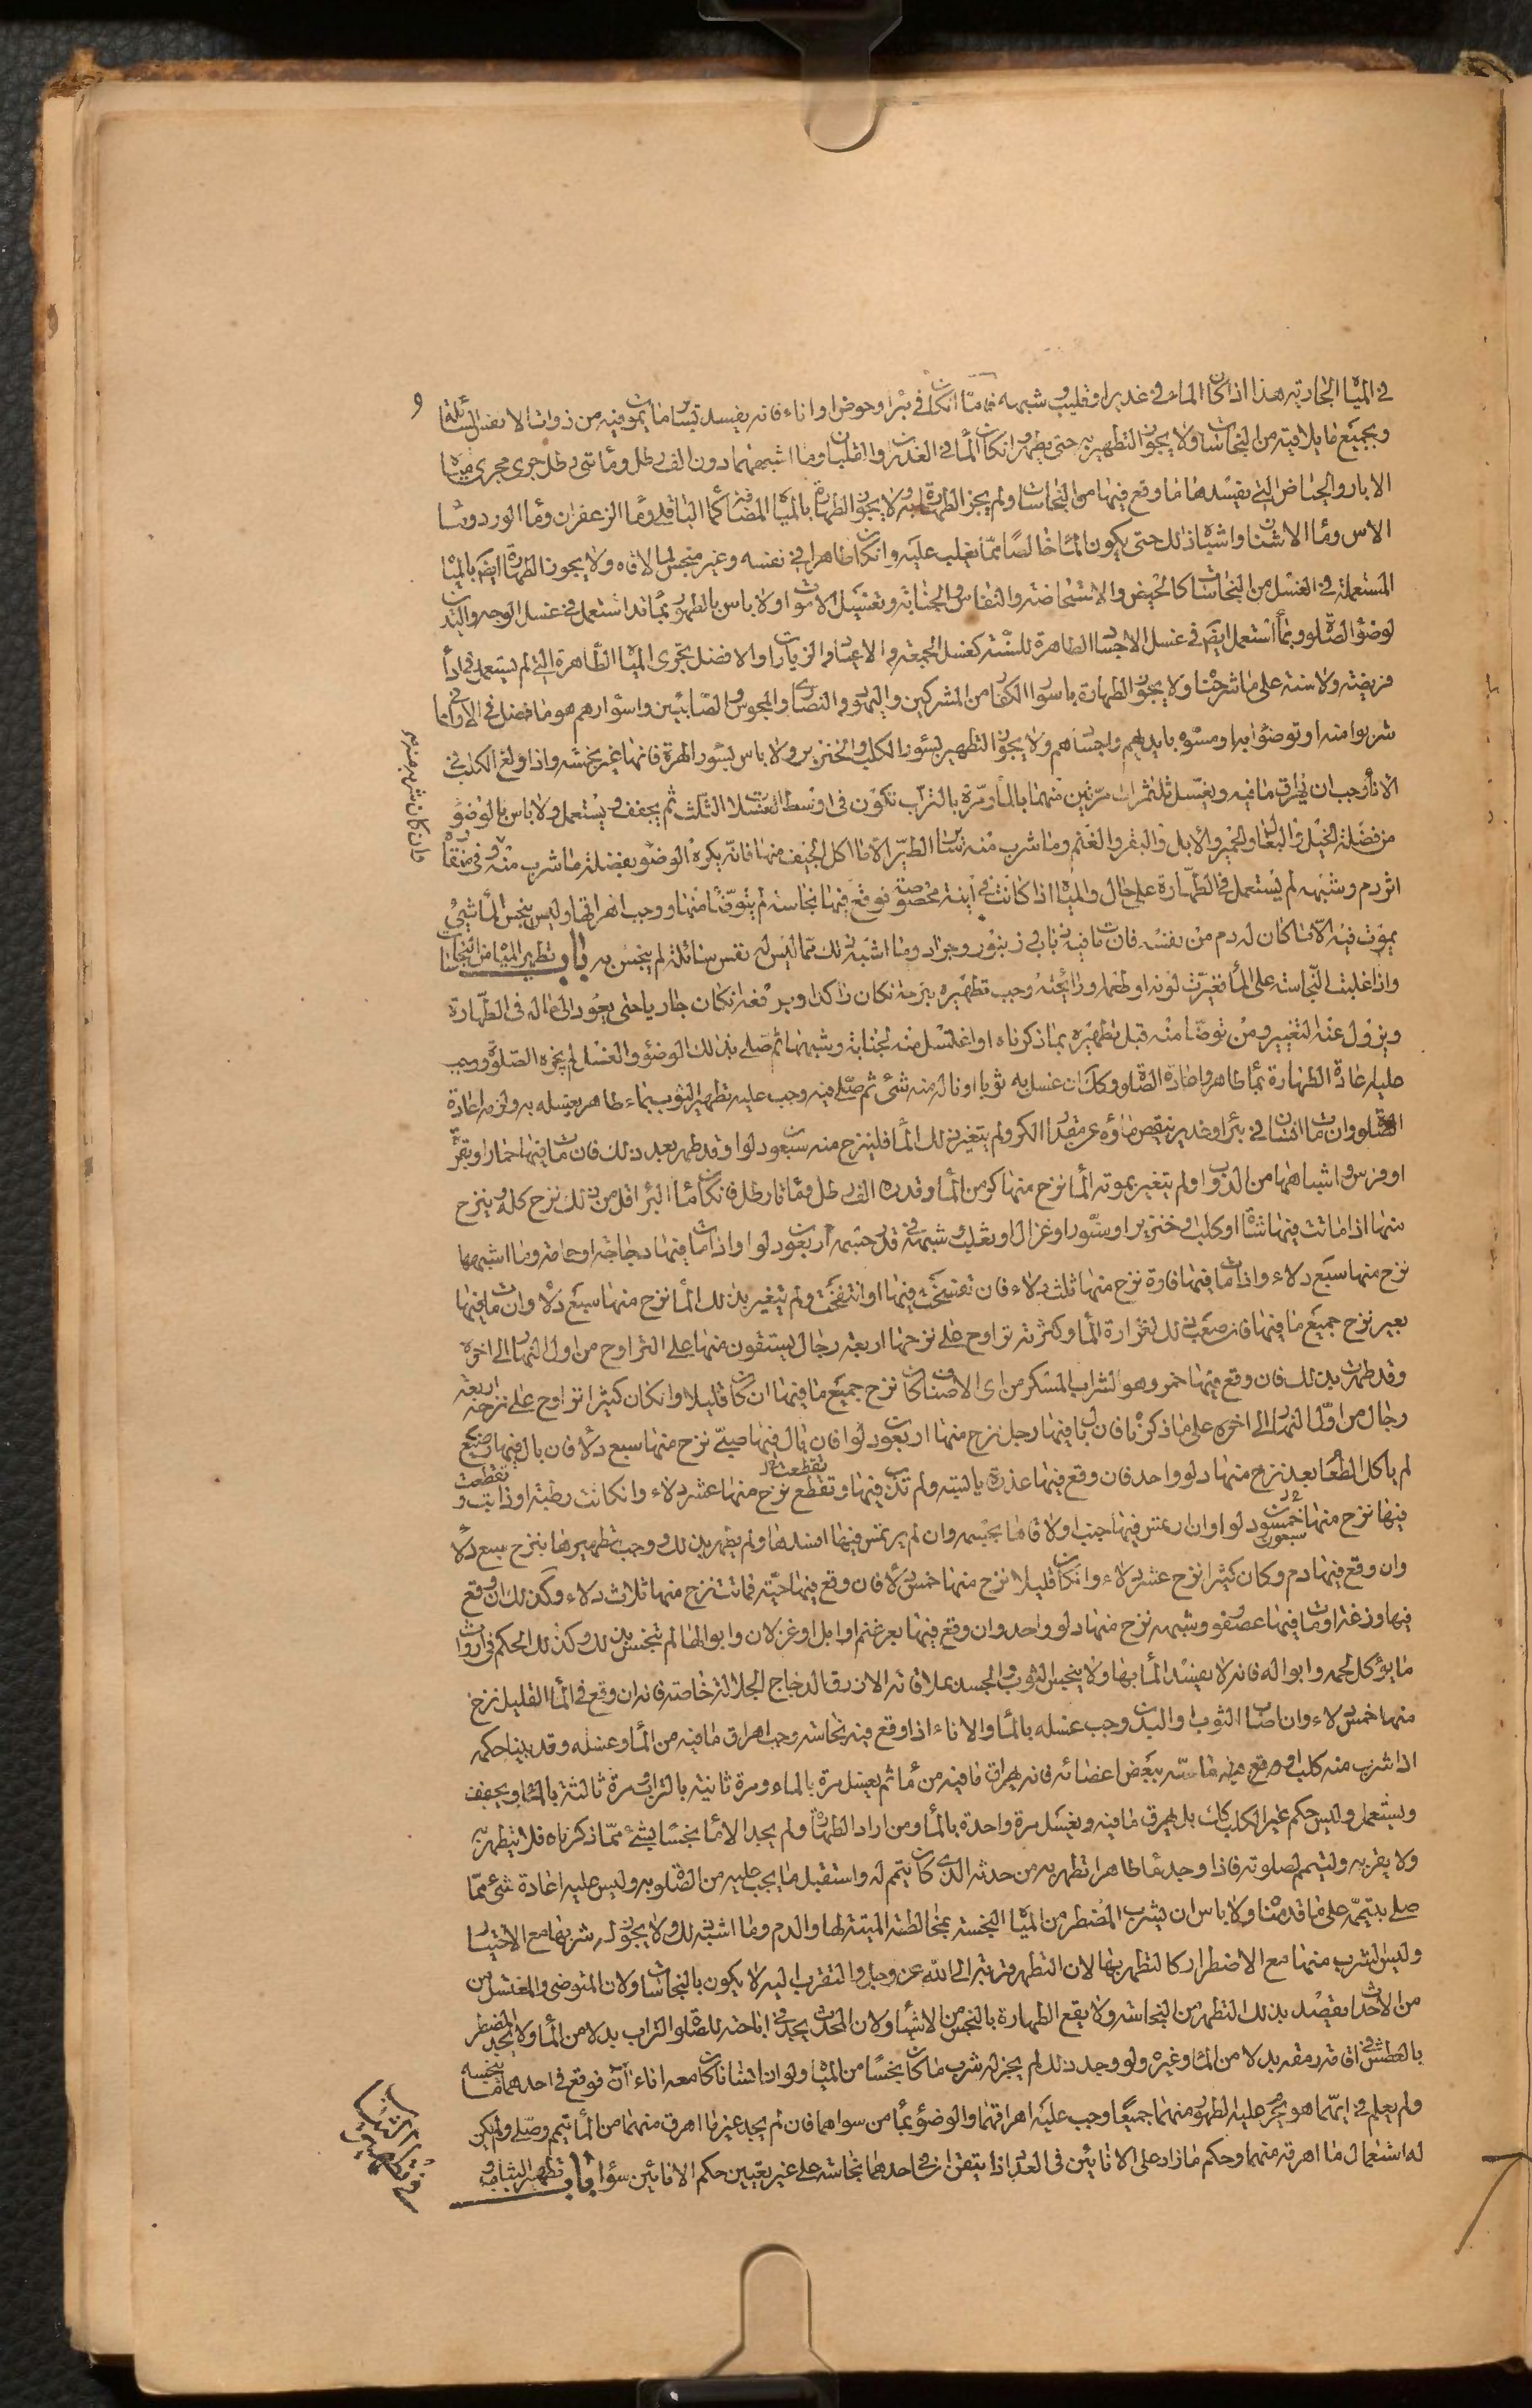 في المياه الجارية هذا اذا كان الماء في غدير او قليب وشبهه فاما اذا كان في بئر او حوض او اناء فانه يفسد بسائر ما يموت فيه من ذوات الانفس السائلة
وبجميع ما يلاقيه من النجاسات ولا يجوز التطهير به حتى يطهر وان كان الماء في الغدران والقلبان وما اشبههما دون الف رطل ومأتي رطل جرى مجرى مياه
الابار والحياض التي يفسدها ما وقع فيها من النجاسات ولم يجز الطهارة به ولا يجوز الطهارة بالمياه المضافة كماء الباقلا وماء الزعفران وماء الورد وماء
الاس وماء الاشنان واشباه ذلك حتى يكون الماء خالصا مما يغلب عليه وان كان طاهرا في نفسه وغير منجس لما لاقاه ولا يجوز الطهارة ايضا بالمياه
المستعملة في الغسل من النجاسات كالحيض والاستحاضة والنفاس والجنابة وتغسيل الاموات ولا باس بالطهور بماء قد استعمل في غسل الوجه واليدين
لوضوء الصلوة وبماء استعمل ايضا في غسل الاجساد الطاهرة للسنة كغسل الجمعة والاعياد والزيارات والافضل تحري المياه الطاهرة التي لم تستعمل في اداء
فريضة ولا سنة على ما شرحناه ولا يجوز الطهارة باسوار الكفار من المشركين واليهود والنصارى والمجوس والصابئين واسوارهم هو ما فضل في الاواني مما
شربوا منه او توضؤا به او مسوه بايديهم واجسادهم ولا يجوز التطهير بسؤر الكلب والخنزير ولا باس بسؤر الهرة فانها غير نجسة واذا ولغ الكلب في
الاناء وجب ان يهراق ما فيه ويغسل ثلث مرات مرتين منها بالماء ومرة بالتراب تكون في اوسط الغسلات الثلث ثم يجفف ويستعمل ولا باس بالوضوء
من فضلة الخيل والبغال والحمير والابل والبقر والغنم وما شرب منه سائر الطير الا ما اكل الجيف منها فانه يكره الوضوء بفضلة ما شرب منه وفي منقاره
اثر دم وشبهه لم يستعمل في الطهارة على حال والمياه اذا كانت في آنية مخصوصة فوقع فيها نجاسة لم يتوضأ منها ووجب اهراقها وليس ينجس الماء شيء
يموت فيه الا ما كان له دم من نفسه فان مات فيه ذباب او زنبور وجراد وما اشبه ذلك مما ليس له نفس سائلة لم ينجس به باب تطهير المياه من النجاسات
واذا غلبت النجاسة على الماء فغيرت لونه او طعمه ورائحته وجب تطهيره بنزحه ان كان راكدا وبدفعه ان كان جاريا حتى يعود الى حاله في الطهارة
ويزول عنه التغيير ومن توضأ منه قبل تطهيره بما ذكرناه او اغتسل منه لجنابة وشبهها ثم صلى بذلك الوضوء والغسل لم يجزه الصلوة ووجب
عليه اعادة الطهارة بماء طاهر واعادة الصلوة وكذلك ان غسل به ثوبا او ناله منه شئ ثم صلى فيه وجب عليه تطهير الثوب بماء طاهر يغسله به ولزمه اعادة
الصلوة وان مات انسان في بئر او غدير ينقص ماؤه عن مقدار الكر ولم يتغير بذلك الماء فلينزح منه سبعون دلوا وقد طهر بعد ذلك فان مات فيها حمار او بقرة
او فرس واشباهها من الدواب ولم يتغير بموته الماء نزح منها كر من الماء وقدره الف رطل ومأتا رطل فان كان ماء البئر اقل من ذلك نزح كله وينزح
منها اذا ماتت فيها شاة او كلب وخنزير او سنور او غزال او ثعلب وشبهه في قدر جسمه اربعون دلوا واذا مات فيها دجاجة او حمامة وما اشبههما
نزح منها سبع دلاء واذا مات فيها فارة نزح منها ثلث دلاء فان تفسخت فيها او انتفخت ولم تتغير بذلك الماء نزح منها سبع دلاء وان مات فيها
بعير نزح جميع ما فيها فان صعب ذلك لغزارة الماء وكثرته تراوح على نزحها اربعة رجال يستقون منها على التراوح من اول النهار الى اخره
وقد طهرت بذلك فان وقع فيها خمر وهو الشراب المسكر من اي الاصناف كان نزح جميع ما فيها ان كان قليلا وان كان كثيرا تراوح على نزحه اربعة
رجال من اول النهار الى اخره على ما ذكرناه فان بال فيها رجل نزح منها اربعون دلوا فان بال فيها صبي نزح منها سبع دلاء فان بال فيها رضيع
لم ياكل الطعام بعد نزح منها دلو واحد فان وقع فيها عذرة يابسة ولم تذب فيها وتقطع نزح منها عشر دلاء وان كانت رطبة او ذابت وتقطعت
فيها نزح منها خمسون دلوا وان ارتمس فيها جنب او لاقاها بجسمه وان لم يرتمس فيها افسدها ولم يطهر بذلك ووجب تطهيرها بنزح سبع دلاء
وان وقع فيها دم وكان كثيرا نزح عشر دلاء وان كان قليلا نزح منها خمس دلاء فان وقع فيها حية فماتت نزح منها ثلاث دلاء وكذلك ان وقع
فيها وزغة او مات فيها عصفور وشبهه نزح منها دلو واحد وان وقع فيها بعر غنم او ابل او غزلان وابوالها لم تنجس بذلك وكذلك الحكم في ارواث
ما يؤكل لحمه وابواله فانه لا يفسد الماء بها ولا ينجس الثوب والجسد بملاقاته الا ذرق الدجاج الجلالة خاصة فانه ان وقع في الماء القليل نزح
منها خمس دلاء وان اصاب الثوب او البدن وجب غسله بالماء والاناء اذا وقع فيه نجاسة وجب اهراق ما فيه من الماء وغسله وقد بينا حكمه
اذا شرب منه كلب او وقع فيه ماسه ببعض اعضائه فانه يهراق ما فيه من ماء ثم يغسل مرة بالماء ومرة ثانية بالتراب ومرة ثالثة بالماء ويجفف
ويستعمل وليس حكم غير الكلب كذلك بل يهرق ما فيه ويغسل مرة واحدة بالماء ومن اراد الطهارة ولم يجد الا ماء نجسا بشئ مما ذكرناه فلا يتطهر به
ولا يقربه وليتيمم لصلوته فاذا وجد ماء طاهرا تطهر به من حدثه الذي كان يتمم له واستقبل ما يجب عليه من الصلوة به وليس عليه اعادة شئ مما
صلى بتيممه على ما قدمناه ولا باس ان يشرب المضطر من المياه النجسة بمخالطة الميتة لها والدم وما اشبه ذلك ولا يجوز له شربها مع الاختيار
وليس الشرب منها مع الاضطرار كالتطهر بها لان التطهر قربة الى الله عز وجل والتقرب اليه لا يكون بالنجاسات ولان المتوضي والمغتسل من
من الاحداث يقصد بذلك التطهر من النجاسة ولا يقع الطهارة بالنجس من الاشياء ولان المحدث يجد في اباحته للصلوة التراب بدلا من الماء ولا يجد المضطر
بالعطش في اقامة رمقه بدلا من الماء وغيره ولو وجد ذلك لم يجز له شرب ما كان نجسا من المياه ولو ان انسانا كان معه اناءان فوقع في احدهما ما ينجسه
ولم يعلم في ايهما هو يحرم عليه الطهور منهما جميعا ووجب عليه اهراقهما والوضوء بماء من سواهما فان لم يجد غير ما اهرق منهما من الماء تيمم وصلى ولم يكن
له استعمال ما اهرقه منهما وحكم ما زاد على الانائين في العدد اذا تيقن ان في احدهما نجاسة على غير تعيين حكم الانائين سواء باب تطهير الثياب و
فان كان شرب منه